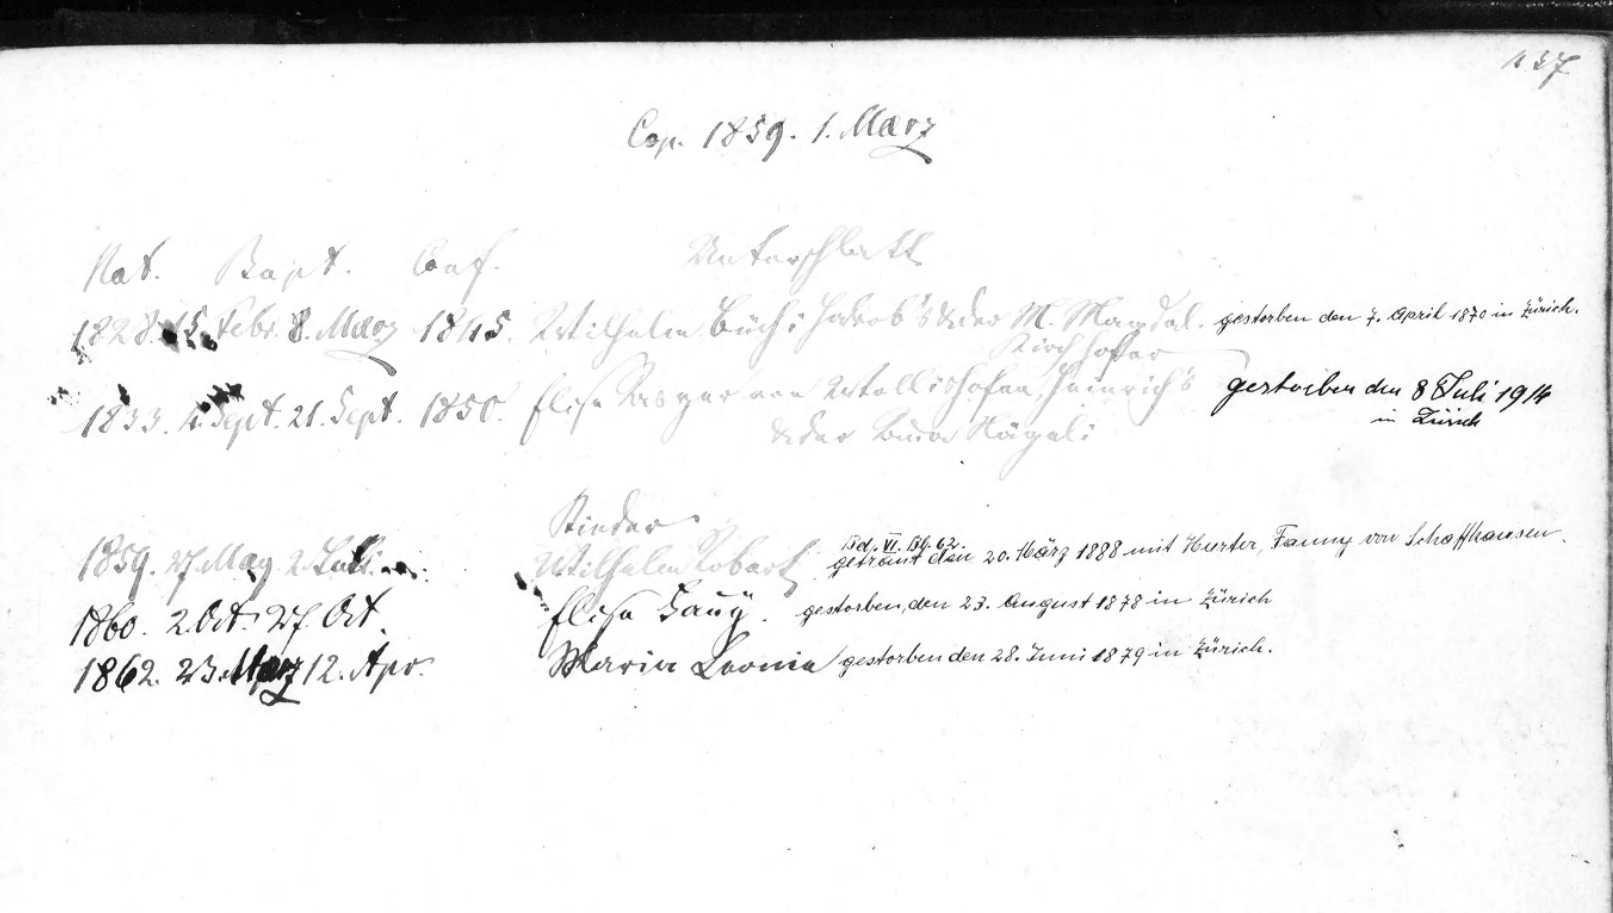 137
Cop. 1859. 1. März
Unterschlatt
Nat. Bapt. Conf.
1828. 15. Febr. 8. März 1845. Wilhelm Büchi Jakob's & der M. Magdal. gestorben den 7. April 1870 in Zürich.
Kirchhofer
1833. 4. Sept. 21. Sept. 1850. Elisa von Wollishofen, Heinrich's gestorben den 8 Juli 1914
& der Nägeli in Zürich
Kinder
Bd. VI. Bl. 62.
1859. 27. May. 2. Juli. Wilhelm Robert getraut den 20. März 1888 mit Hurter, Fanny von Schaffhausen.
1860. 2. Oct. 27. Oct. Elisa Fanÿ. gestorben, den 23. August 1878 in Zürich
1862. 23. März 12. Apr. Maria Leonie gestorben den 28. Juni 1879 in Zürich.